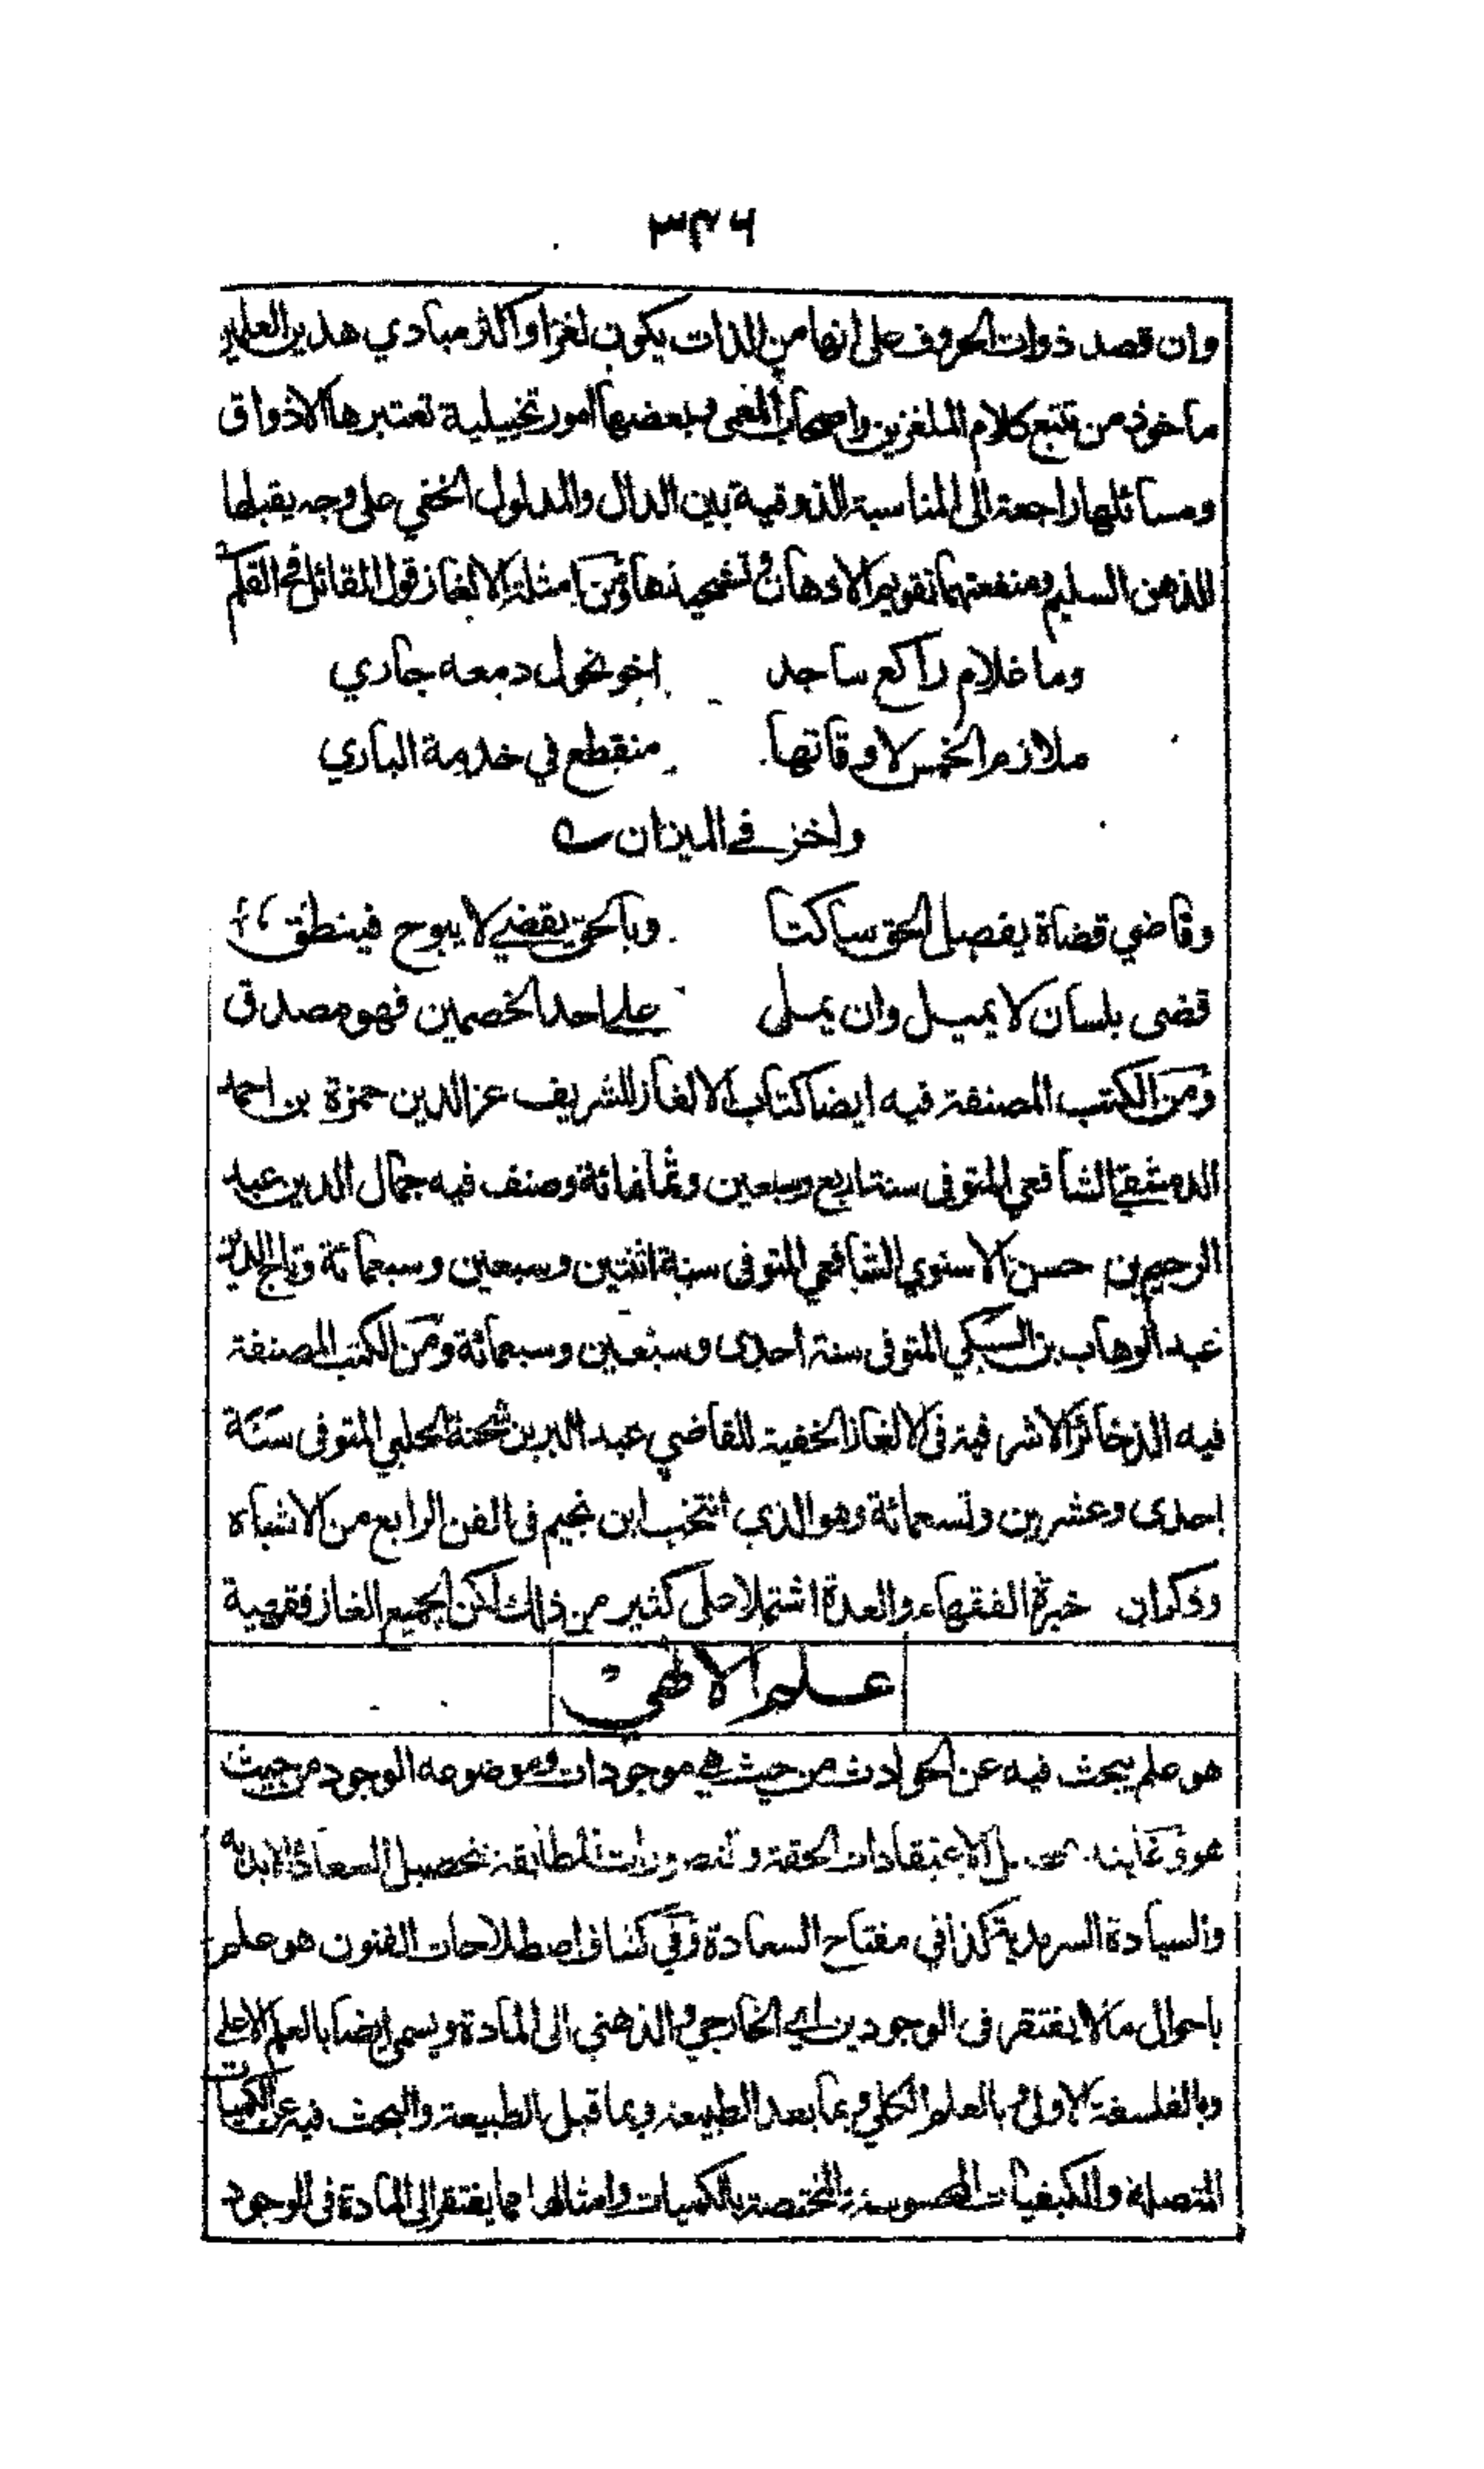 ٣٣٦
وان قصد ذوات الحروف على انها من الذات يكون لغزا واكثر مبادي هذين العلمين
ماخوذ من تتبع كلام الملغزين واصحاب المعمى وبعضها امور تخييلية تعتبرها الاذواق
ومسائلها راجعة الى المناسبة الذوقية بين الدال والمدلول الخفي على وجه يقبلها
الذهن السليم ومنفعتهما تقويم الاذهان وتشحيذها ومن امثلة الالغاز قول القائل في القلم
وما غلام راكع ساجد اخو نحول دمعه جاري
ملازم الخمس لاوقاتها منقطع في خدمة الباري
واخر في الميزان
وقاضي قضاة يفصل الحق ساكتا وبالحق يقضي لا يبوح فينطق
قضى بلسان لا يميل وان يمل على احد الخصمين فهو مصدق
ومن الكتب المصنفة فيه ايضا كتاب الالغاز للشريف عز الدين حمزة بن احمد
الدمشقي الشافعي المتوفى سنة اربع وسبعين وثمانمائة وصنف فيه جمال الدين عبد
الرحيم بن حسن الاسنوي الشافعي المتوفى سنة اثنتين وسبعين وسبعمائة وتاج الدين
عبد الوهاب بن السبكي المتوفى سنة احدى وسبعين وسبعمائة ومن الكتب المصنفة
فيه الذخائر الاشرفية في الالغاز الخفية للقاضي عبد البر بن شحنة الحلبي المتوفى سنة
احدى وعشرين وتسعمائة وهو الذي انتخب ابن نجيم في الفن الرابع من الاشباه
وذكر ان خيرة الفقهاء والعدة اشتملا على كثير من ذلك لكن الجميع الغاز فقهية
علم الالهي
هو علم يبحث فيه عن الحوادث من حيث هي موجودات وموضوعه الوجود من حيث
هو وغايته تحصيل الاعتقادات الحقة وتصورات المطابقة لتحصيل السعادة الابدية
والسيادة السرمدية كذا في مفتاح السعادة وفي كشاف اصطلاحات الفنون هو علم
باحوال ما لا يفتقر في الوجودين اي الخارجي والذهني الى المادة ويسمى ايضا بالعلم الاعلى
وبالفلسفة الاولى وبالعلم الكلي وبما بعد الطبيعة وبما قبل الطبيعة والبحث فيه عن الكميات
المتصلة والكيفيات المحسوسة والمختصة بالكميات وامثالها مما يفتقر الى المادة في الوجود